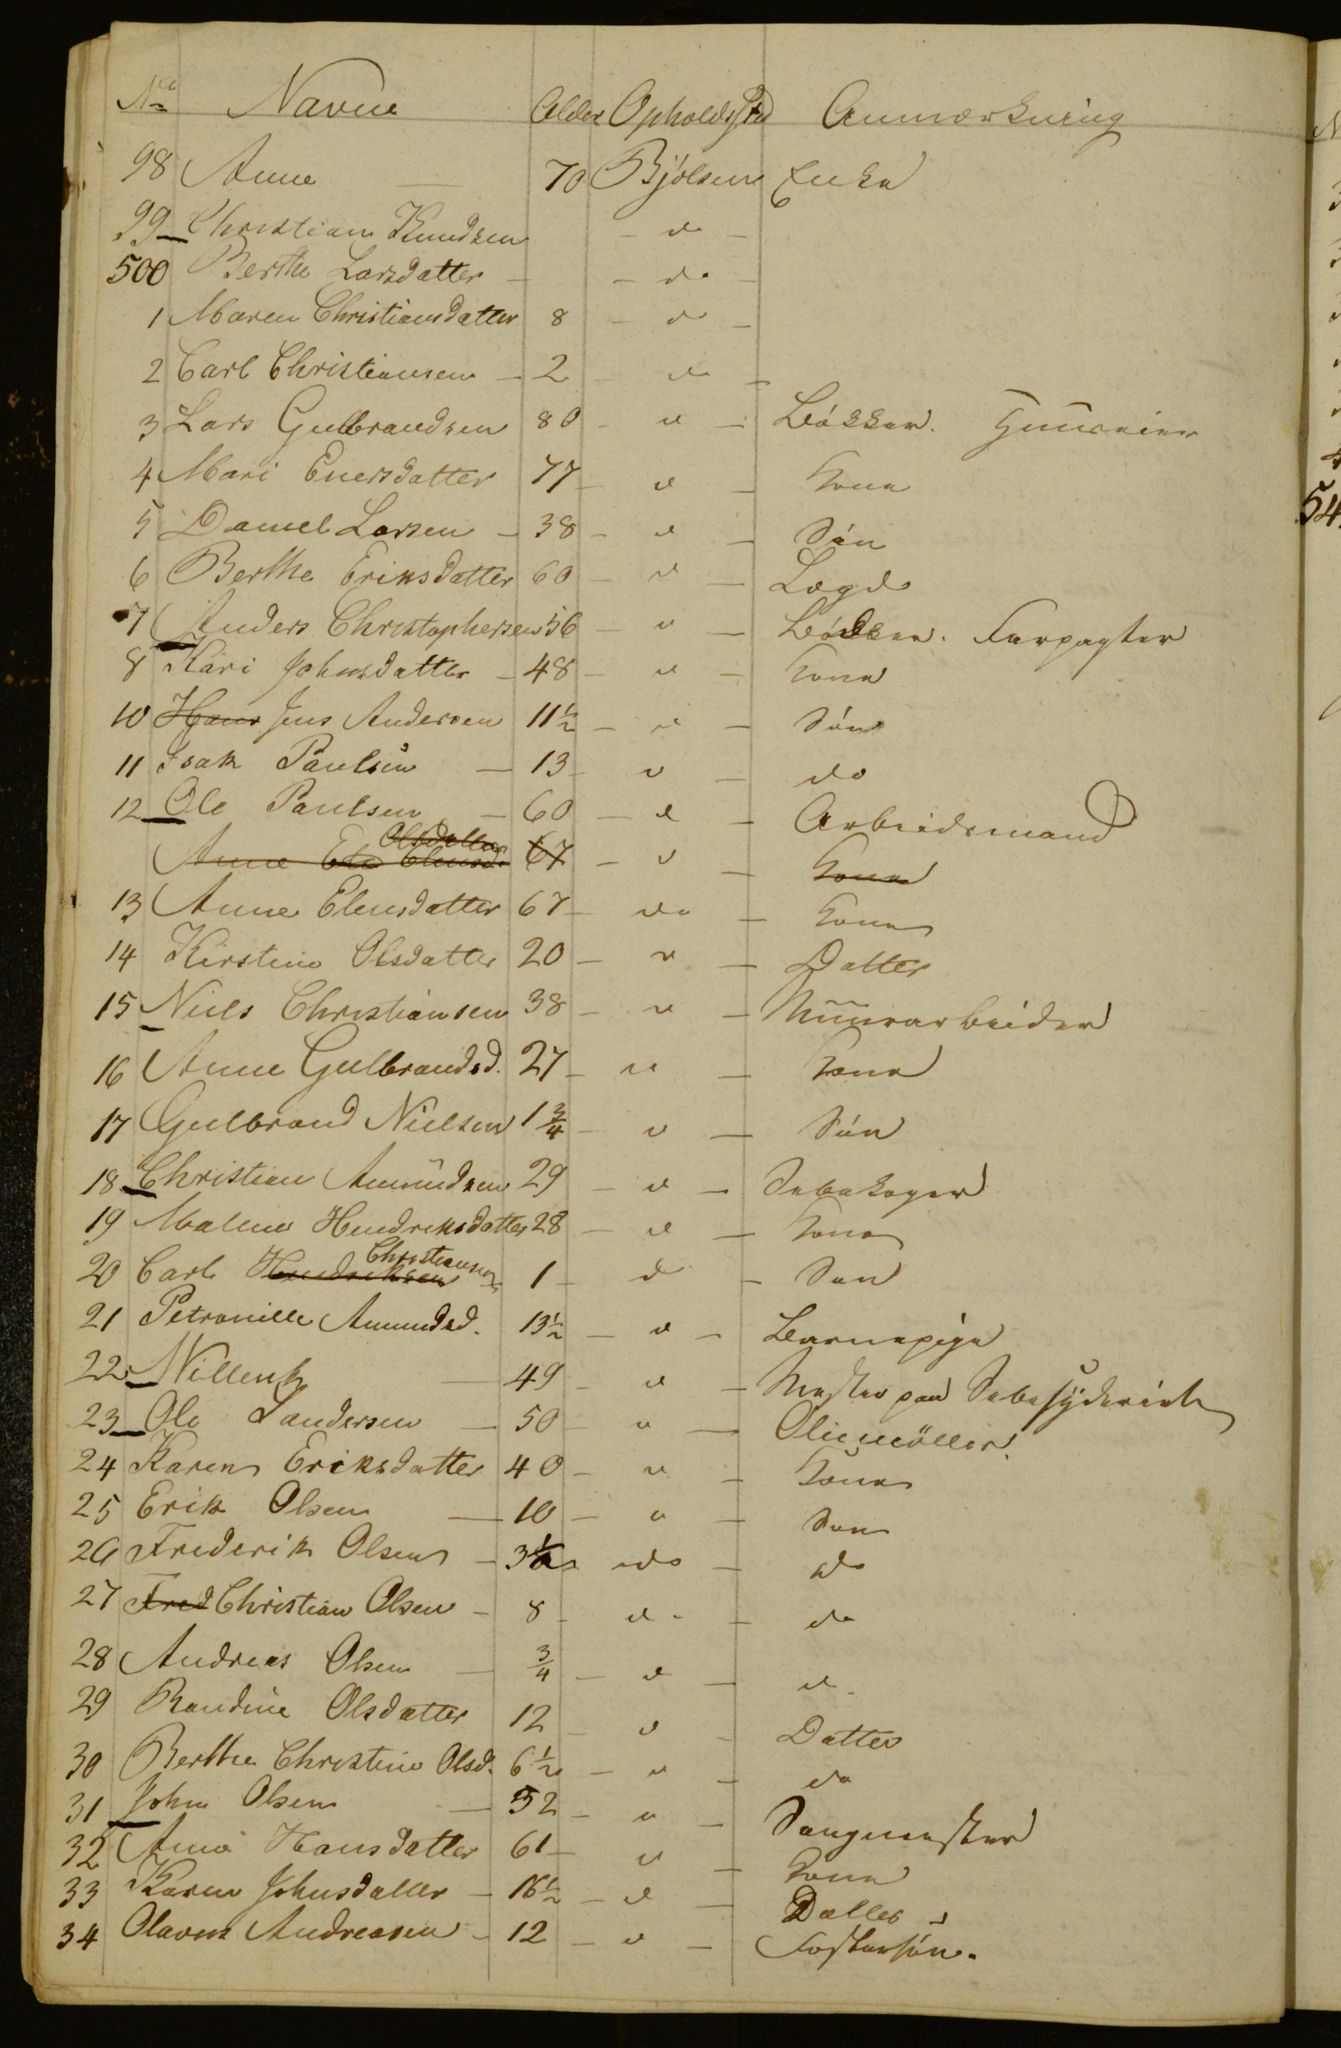 No Navne Alder Opholdssted Anmærkning
98 Anne — 70 Bjölsen Enke
99 Christian Knudsen — do —
500 Berthe Larsdatter — — do —
1 Maren Christiansdatter 8 — do —
2 Carl Christiansen — 2 — do —
3 Lars Gulbrandsen 80 — d — Bökker. Huuseier
4 Mari Enersdatter 77 — d — Kone
5 Daniel Larsen — 38 — d — Sön
6 Berthe Eriksdatter 60 — d — Lægd
7 Anders Christophersen 56 — d — Bödker. Forpagter
8 Kari Johnsdatter — 48 — d — Kone
10 Hans Jens Andersen 11½ — d — Sön
11 Isak Paulsen — 13 — d — do
12 Ole Paulsen — 60 — d — Arbeidsmand
Olsdatter
Anne Ele Elensd. 67 — d — Kone
13 Anne Elensdatter 67 — do — Kone
14 Kirstine Olsdatter 20 — d — Datter
15 Niels Christiansen 38 — d — Muurarbeider
16 Anne Gulbrandsd. 27 — d — Kone
17 Gulbrand Nielsen 1¾ — d — Sön
18 Christian Amundsen 29 — d — Sæbekoger
19 Malene Hendriksdatter 28 — d — Kone
Christiansen
20 Carl Hendriksen 1 — d — Søn
21 Petronille Amundsd. 13½ — d — Barnepige
22 Willenk — 49 — d — Mester paa Sæbesyderiet
23 Ole Sandersen — 50 — d — Oliemöller
24 Karen Eriksdatter 40 — d — Kone
25 Erik Olsen — 10 — d — Søn
26 Frederik Olsen — 3½ — do — do
27 Fred Christian Olsen — 8 — d — do
28 Andreas Olsen — ¾ — d — d
29 Randine Olsdatter 12 — d — Datter
30 Berthe Christine Olsd. 6½ — d — do
31 John Olsen — 52 — d — Saugmester
32 Anne Hansdatter 61 — d — Kone
33 Karen Johnsdatter — 16½ — d — Datter
34 Olaves Andreasen — 12 — d — Fostersön.
54